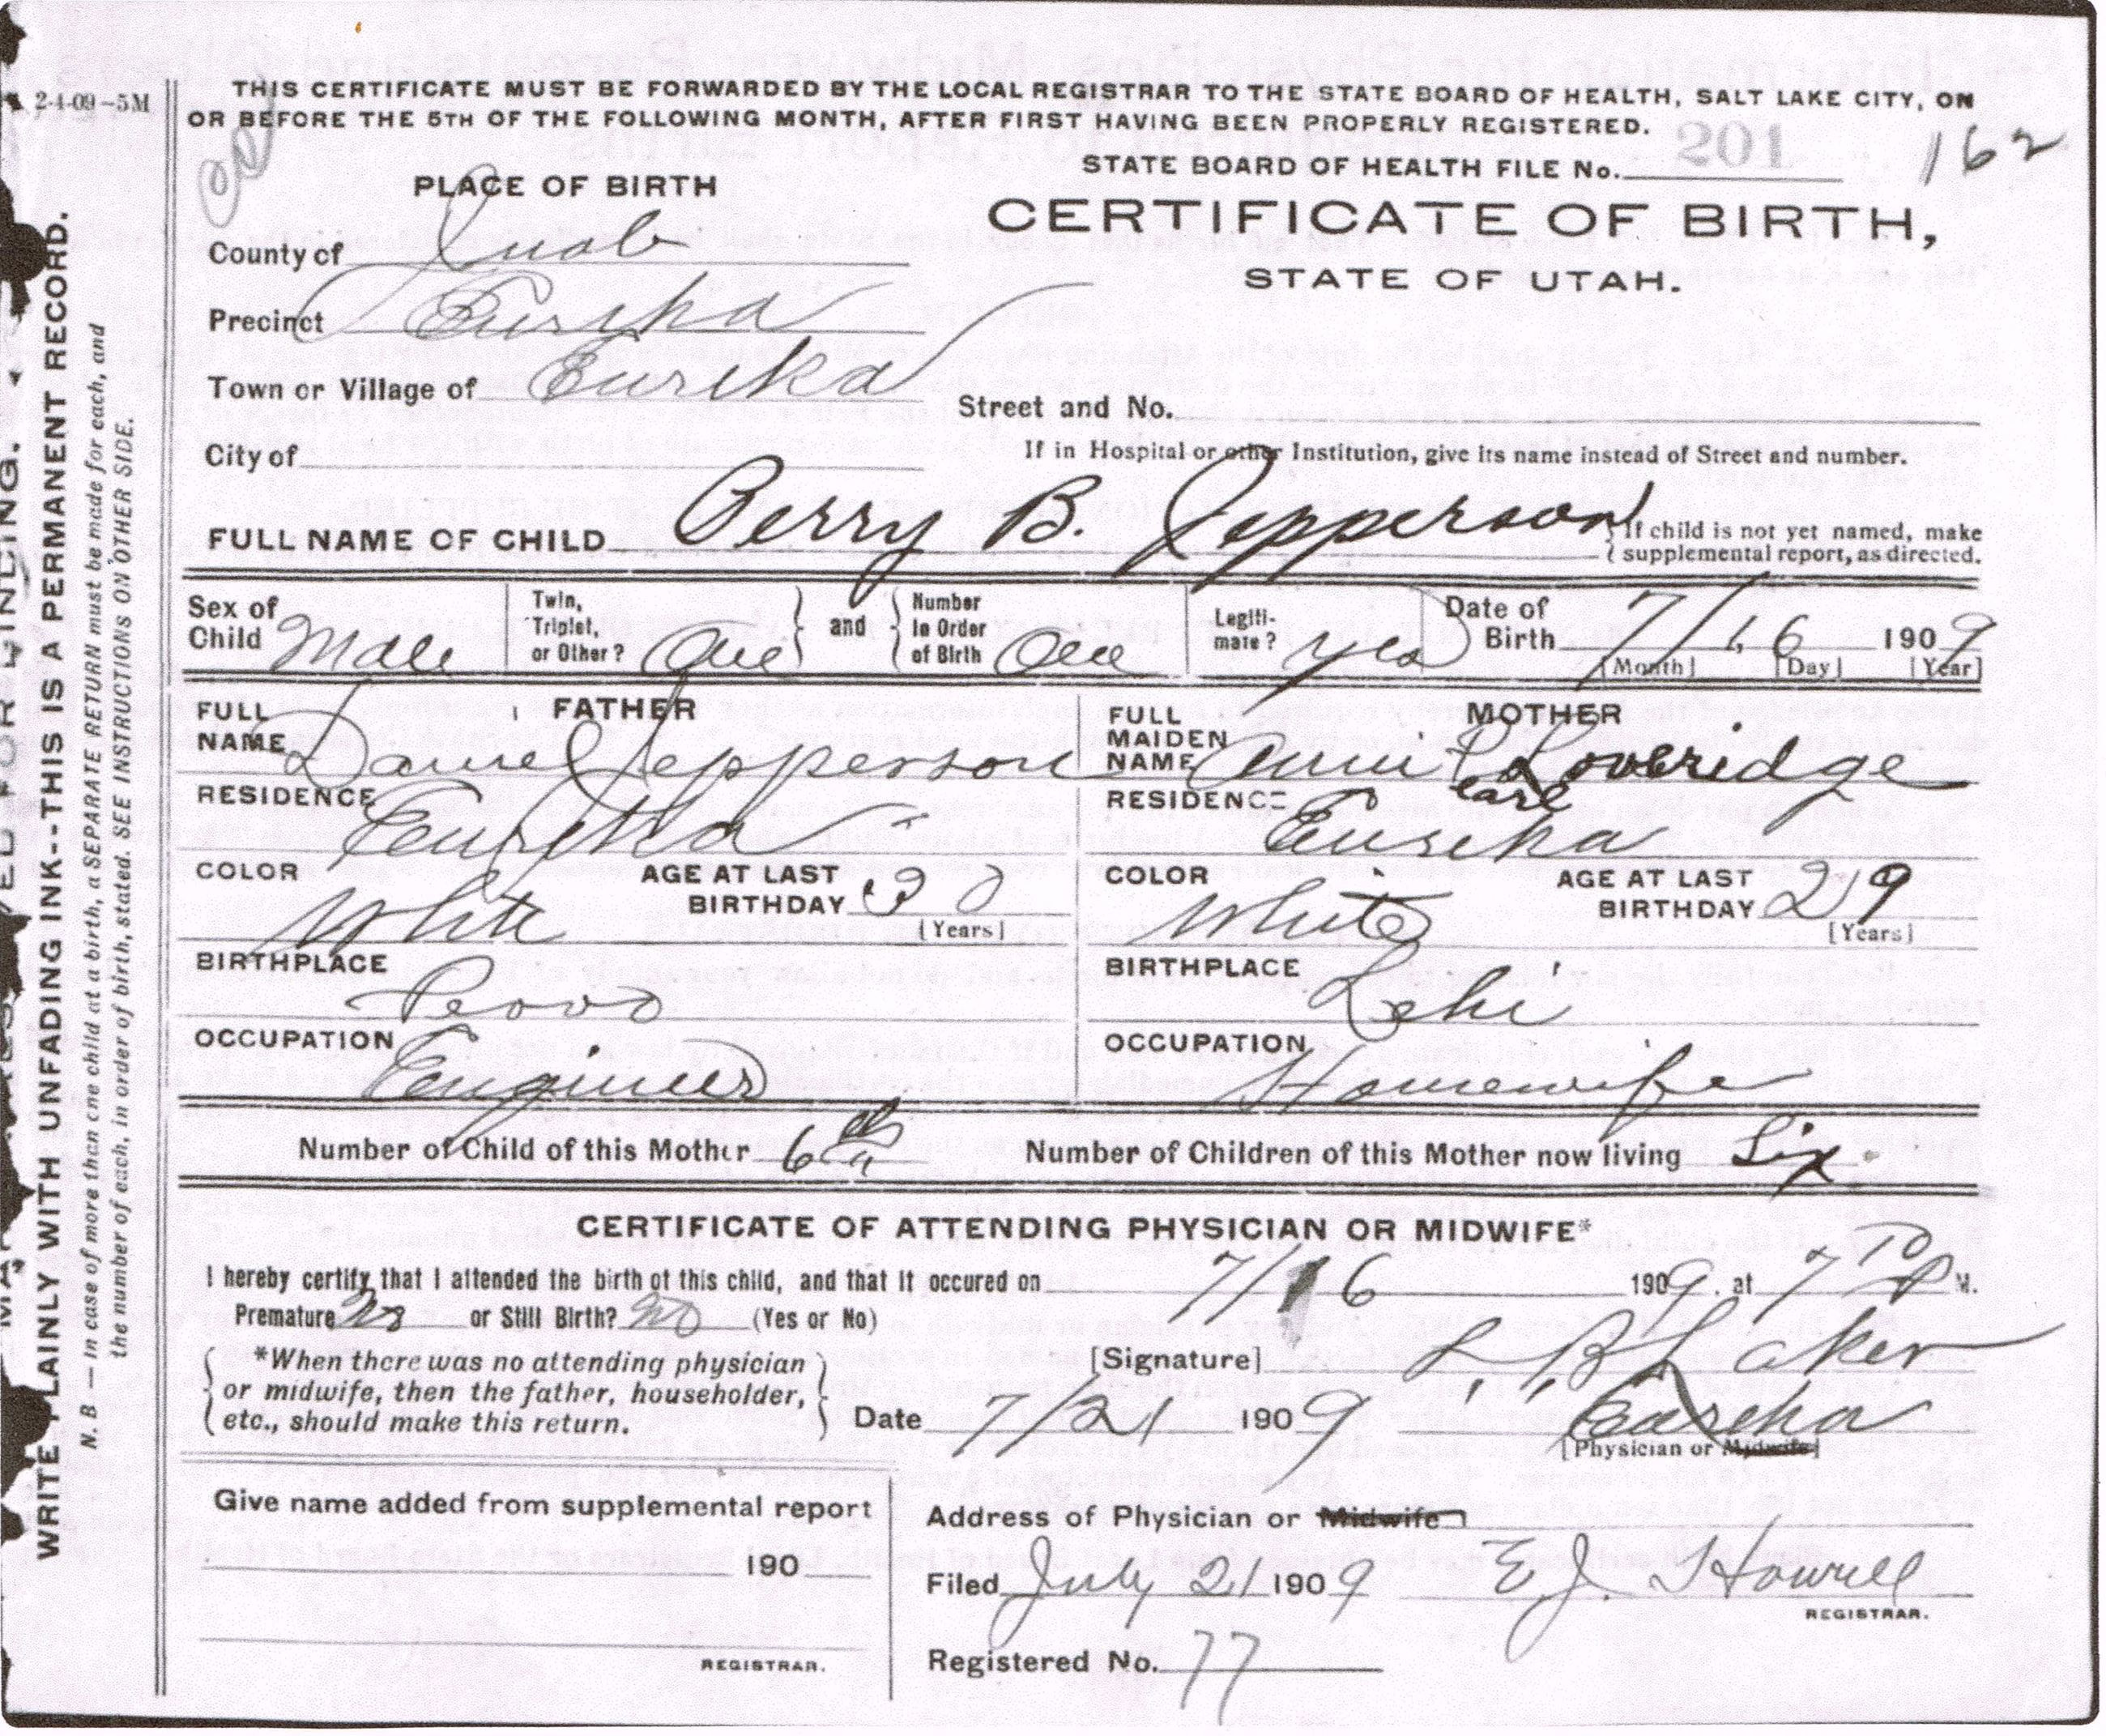 2-4-09-5M
THIS CERTIFICATE MUST BE FORWARDED BY THE LOCAL REGISTRAR TO THE STATE BOARD OF HEALTH, SALT LAKE CITY, ON
OR BEFORE THE 5TH OF THE FOLLOWING MONTH, AFTER FIRST HAVING BEEN PROPERLY REGISTERED.
STATE BOARD OF HEALTH FILE No. 201 162
PLACE OF BIRTH
CERTIFICATE OF BIRTH,
STATE OF UTAH.
County of Juab
Precinct Eureka
Town or Village of Eureka
Street and No.
City of
If in Hospital or other Institution, give its name instead of Street and number.
FULL NAME OF CHILD Perry B. Jepperson
If child is not yet named, make
supplemental report, as directed.
Sex of Child Male
Twin, Triplet, or Other? One and Number in Order of Birth One
Legiti-mate? yes
Date of Birth 7/16 1909
[Month] [Day] [Year]
FATHER
FULL NAME Daniel Jepperson
RESIDENCE Eureka
COLOR White AGE AT LAST BIRTHDAY 30
[Years]
BIRTHPLACE Provo
OCCUPATION Engineer
MOTHER
FULL MAIDEN NAME Annie Pearl Loveridge
RESIDENCE Eureka
COLOR White AGE AT LAST BIRTHDAY 29
[Years]
BIRTHPLACE Lehi
OCCUPATION Housewife
Number of Child of this Mother 6th Number of Children of this Mother now living Six
CERTIFICATE OF ATTENDING PHYSICIAN OR MIDWIFE*
I hereby certify that I attended the birth of this child, and that it occured on 7/16 1909, at 7 P M.
Premature No or Still Birth? No (Yes or No)
*When there was no attending physician
or midwife, then the father, householder,
etc., should make this return.
[Signature] L. B. Laker
Date 7/21 1909 Eureka
[Physician or Midwife]
Give name added from supplemental report
190
REGISTRAR.
Address of Physician or Midwife
Filed July 21 1909 E J. Howell
REGISTRAR.
Registered No. 77
WRITE PLAINLY WITH UNFADING INK--THIS IS A PERMANENT RECORD.
N. B — In case of more than one child at a birth, a SEPARATE RETURN must be made for each, and
the number of each, in order of birth, stated. SEE INSTRUCTIONS ON OTHER SIDE.